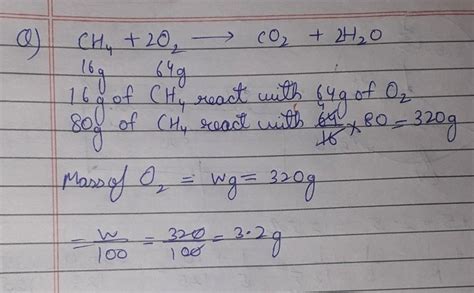 Q) CH₄ + 2O₂ ⟶ CO₂ + 2H₂O
16g 64g
16g of CH₄ react with 64g of O₂
80g of CH₄ react with 64/16 × 80 = 320g
Mass of O₂ = Wg = 320g
= W/100 = 320/100 = 3.2g